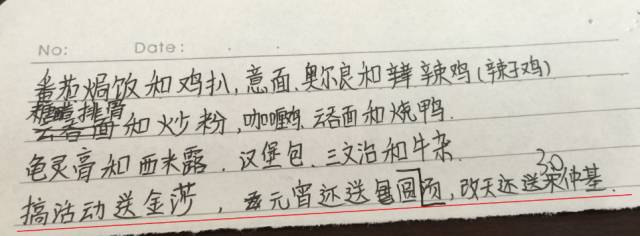 No: Date:
番茄焗饭和鸡扒,意面,奥尔良和辣鸡(辣子鸡)
糖醋排骨
和炒粉,咖喱鸡,云吞面和烧鸭.
龟灵膏和西米露.汉堡包,三文治和牛杂.
30
搞活动送金莎,元宵还送圆汤,改天还送宋仲基.